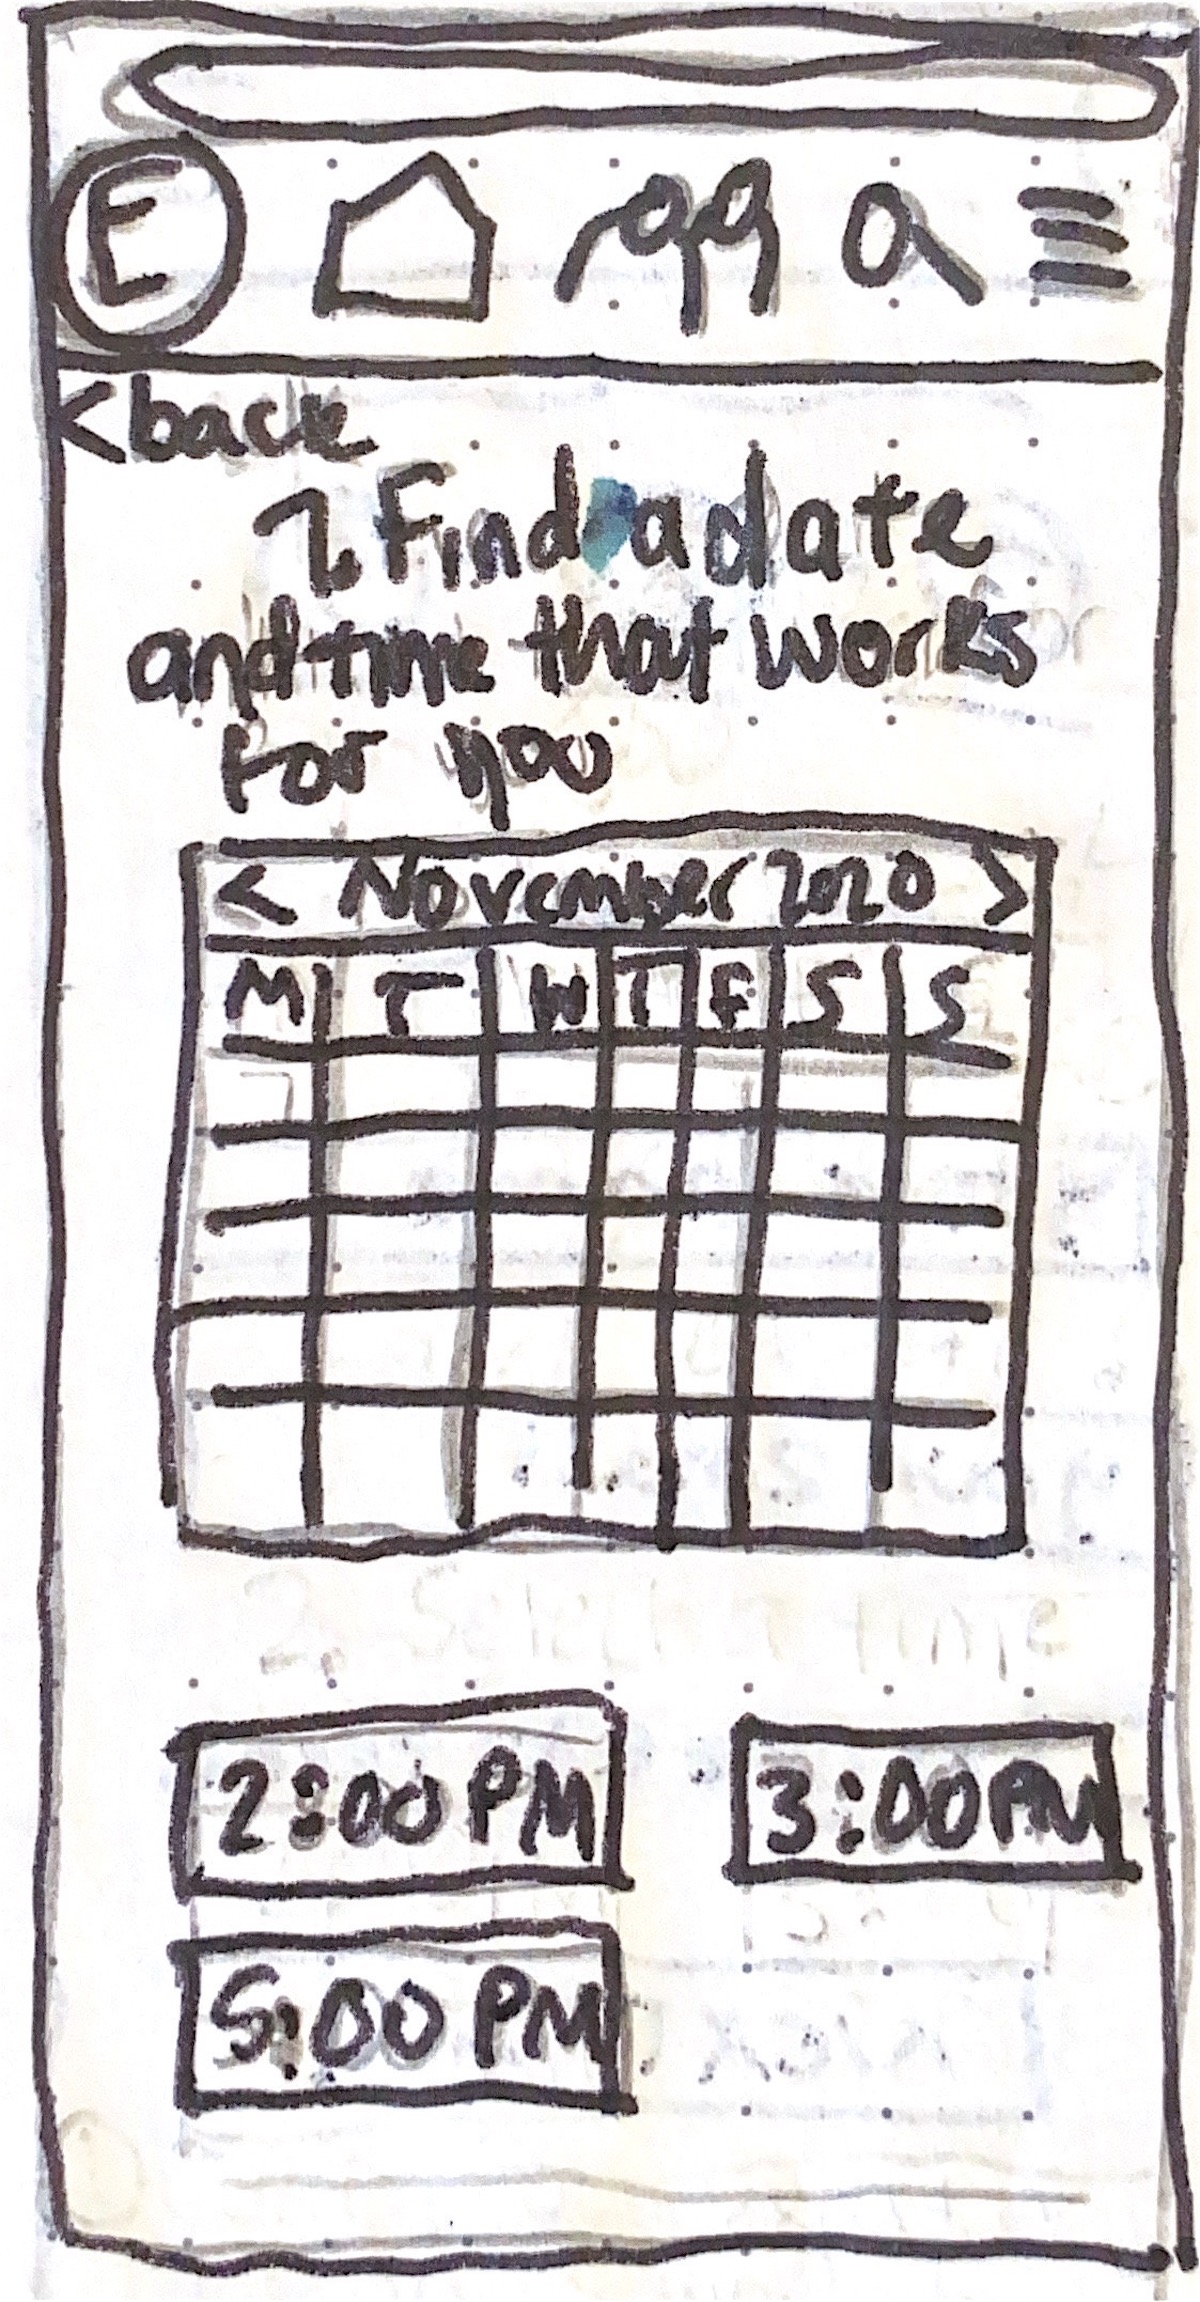 E
<back
2. Find a date
and time that works
for you
< November 2020 >
M T W T F S S
2:00 PM 3:00 PM
5:00 PM